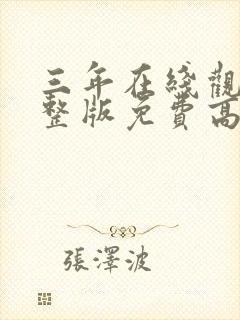 三年在綫觀
整版免費高
張澤波